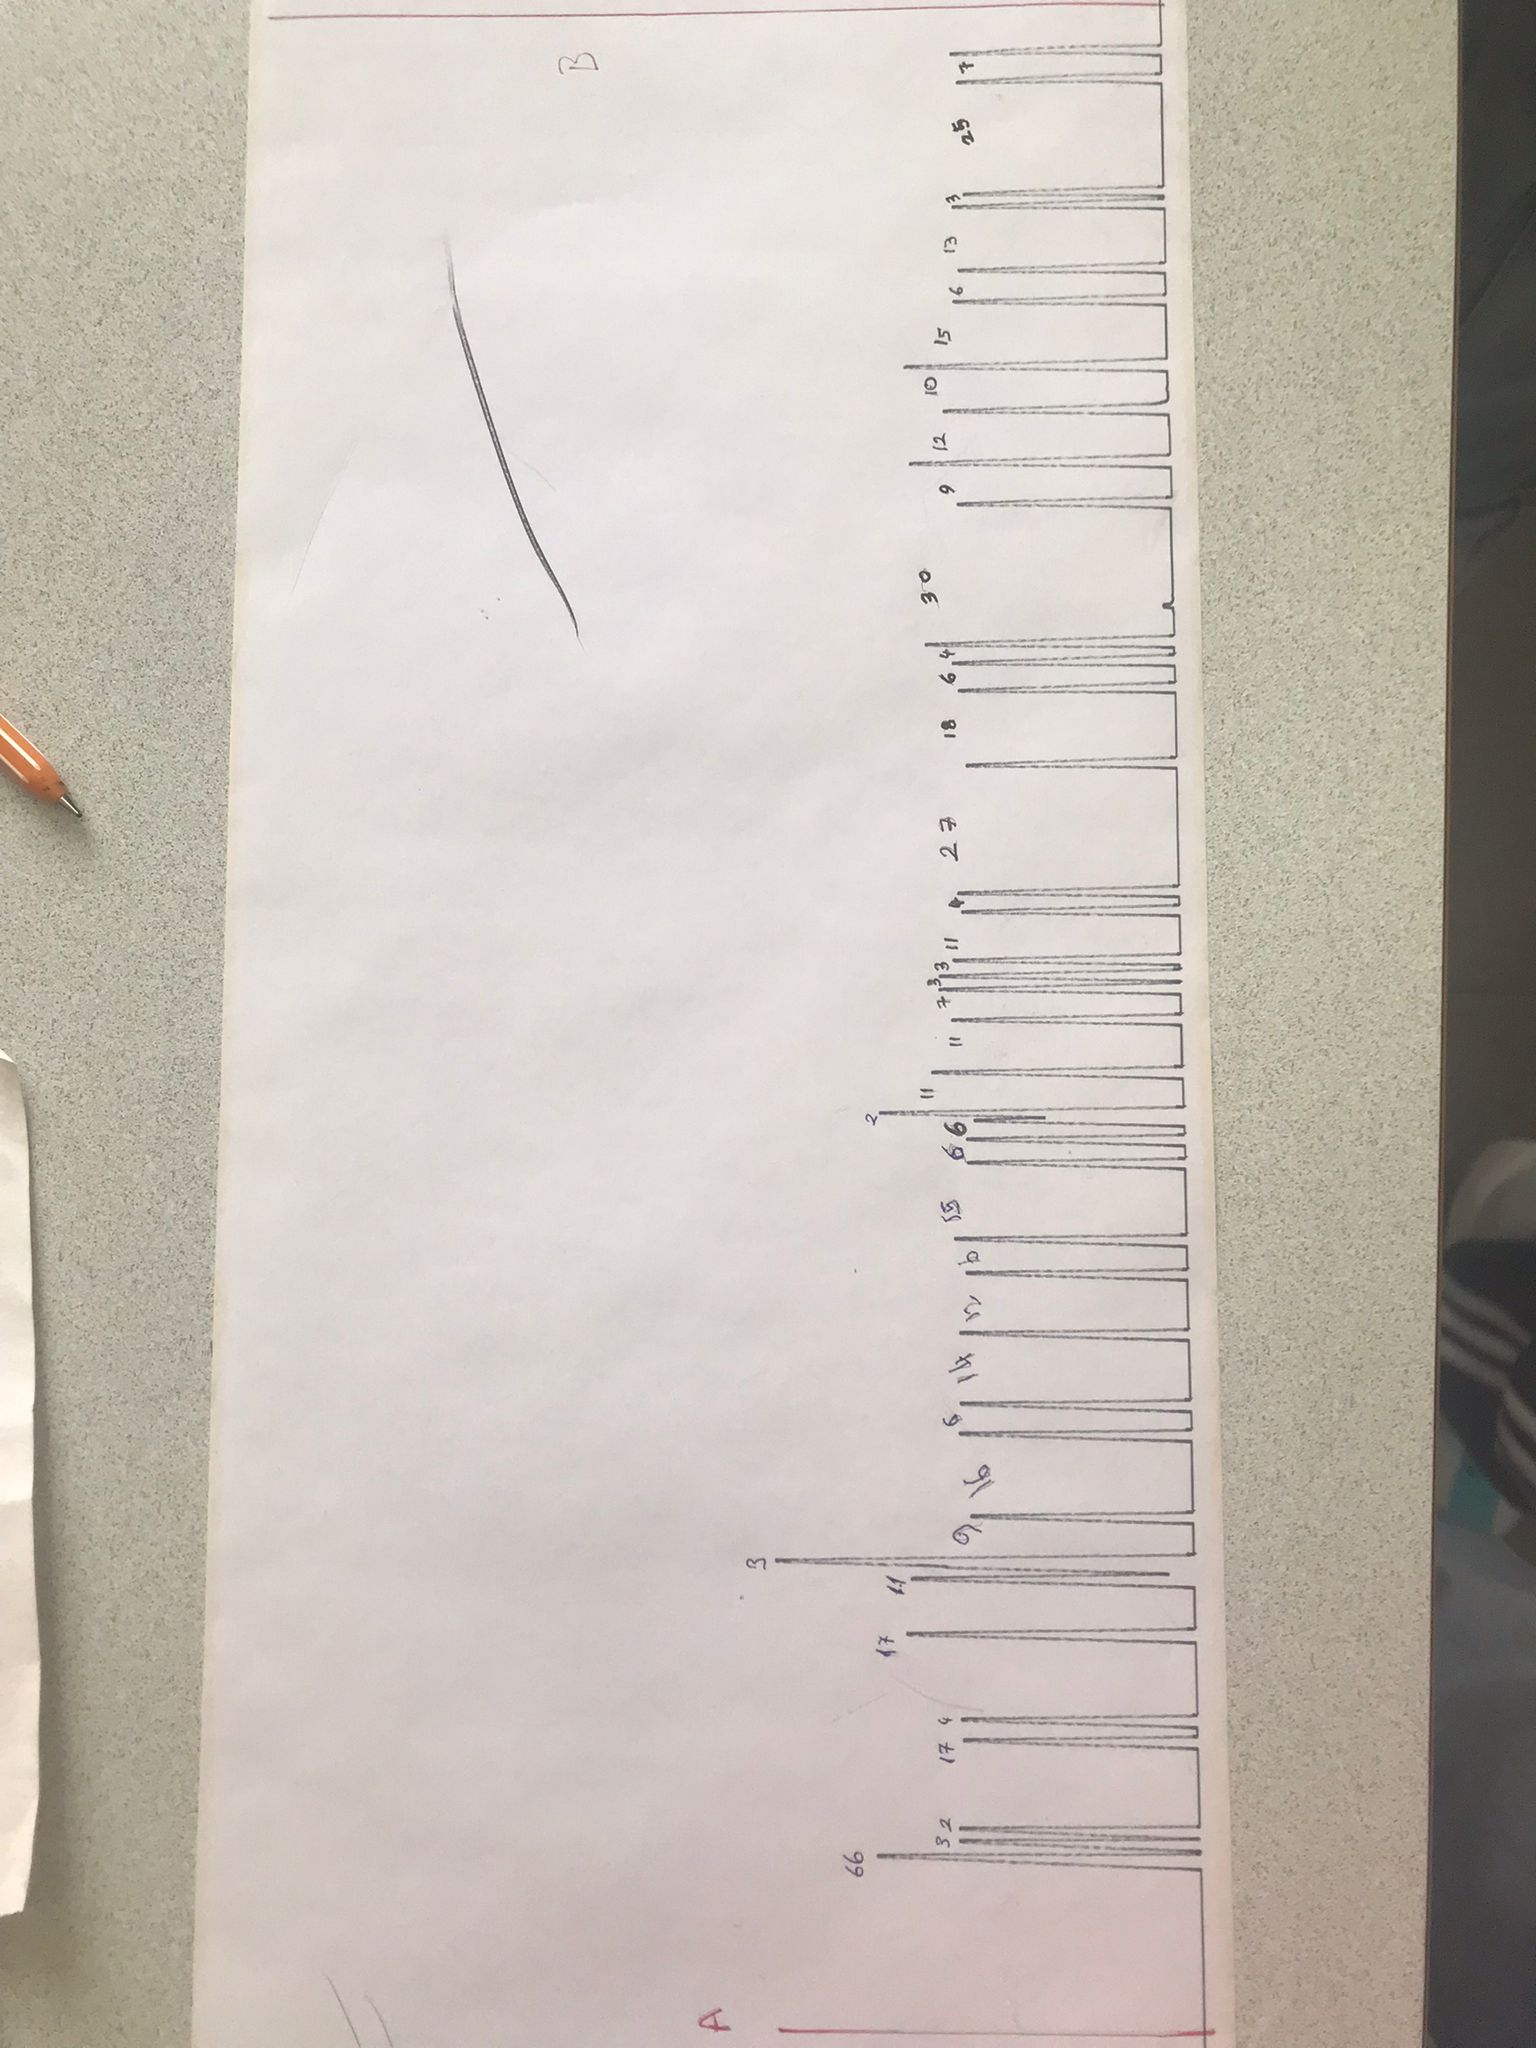 A
66
3
2
17
4
17
11
3
9
16
6
14
6
15
6
6
2
11
11
7
3
3
11
4
27
18
6
4
30
9
12
10
15
6
13
3
25
7
B